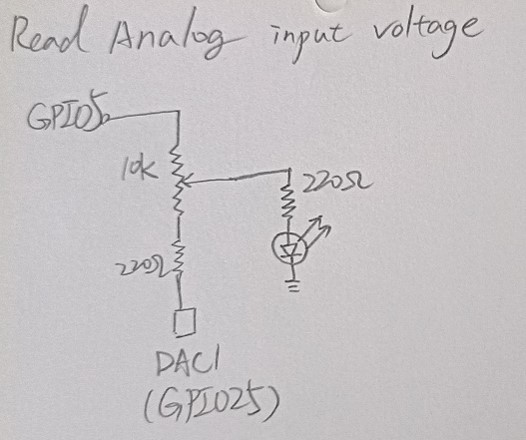 Read Analog input voltage
GPIO5
10k
220Ω
220Ω
DAC1
(GPIO25)